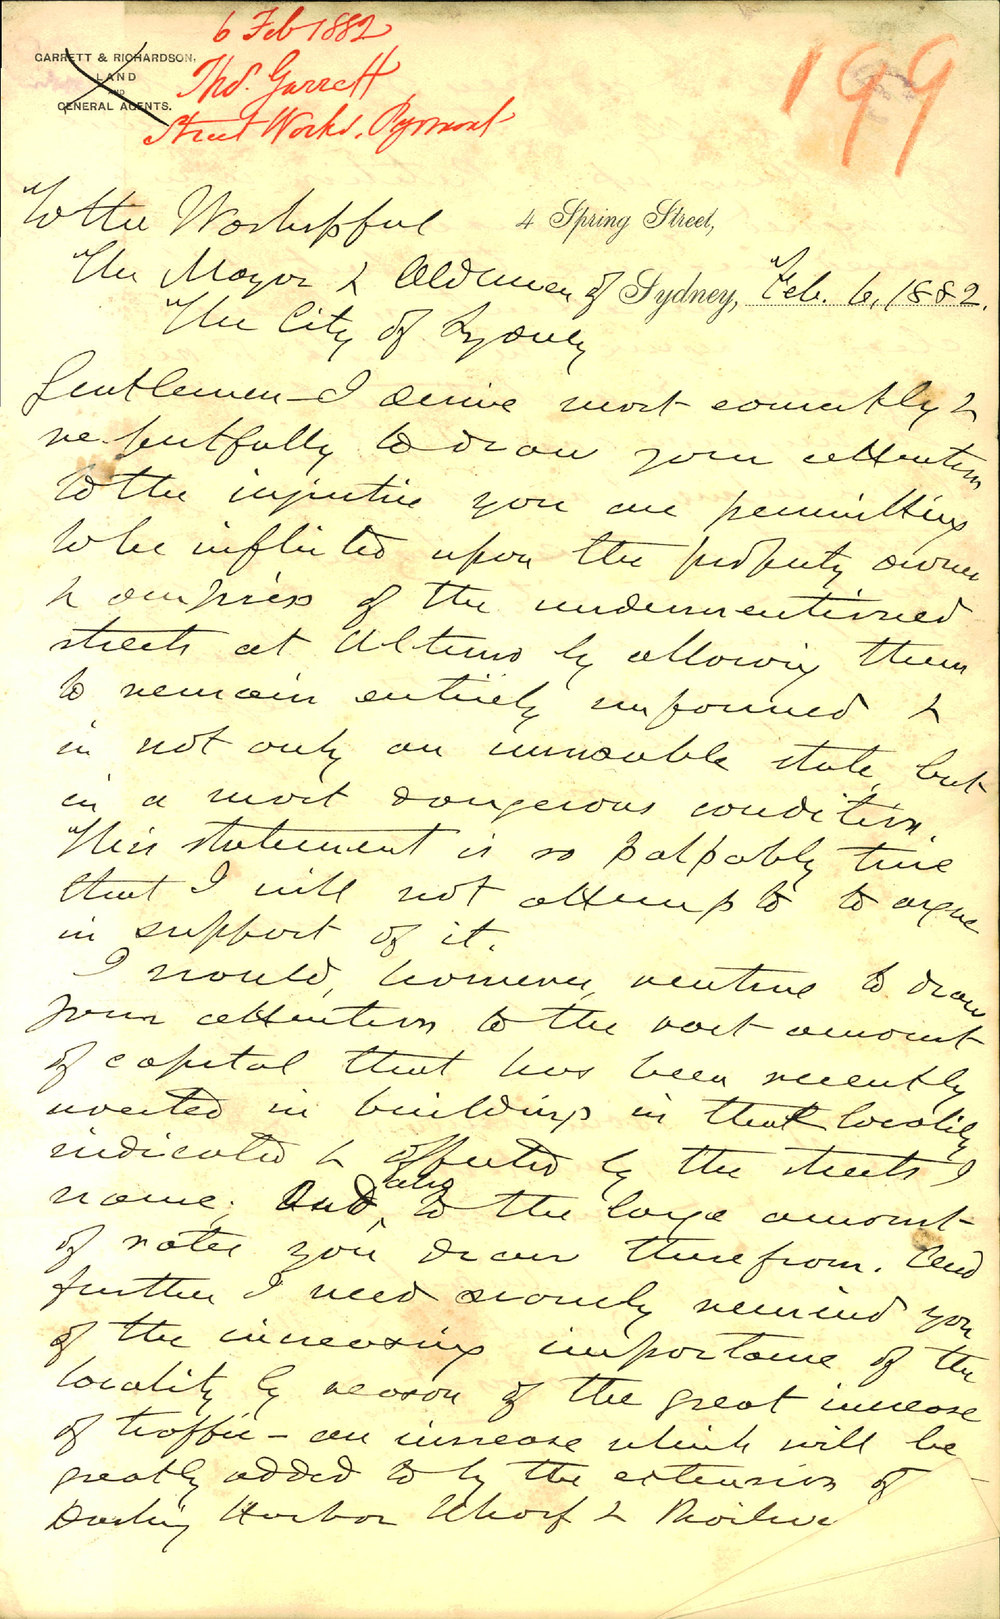 6 Feb 1882
199
GARRETT & RICHARDSON,
LAND
AND
GENERAL AGENTS.
Thos. Garrett
Street Works. Pyrmont
To the Worshipful
4 Spring Street,
The Mayor & Aldermen of
Sydney, Feb. 6, 1882.
The City of Sydney
Gentlemen - I desire most earnestly &
respectfully to draw your attention
to the injustice you are permitting
to be inflicted upon the property owners
& occupiers of the undermentioned
streets at Ultimo by allowing them
to remain entirely unformed &
in not only an unusable state, but
in a most dangerous condition.
This statement is so palpably true
that I will not attempt to to argue
in support of it.
I would, however, venture to draw
your attention to the vast amount
of capital that has been recently
invested in buildings in that locality
indicated & affected by the streets I
name; And, also
to the large amount
of rates you draw therefrom. And
further I need scarcely remind you
of the increasing importance of the
locality by reason of the great increase
of traffic - an increase which will be
greatly added to by the extension of
Darling Harbor Wharf & Railway